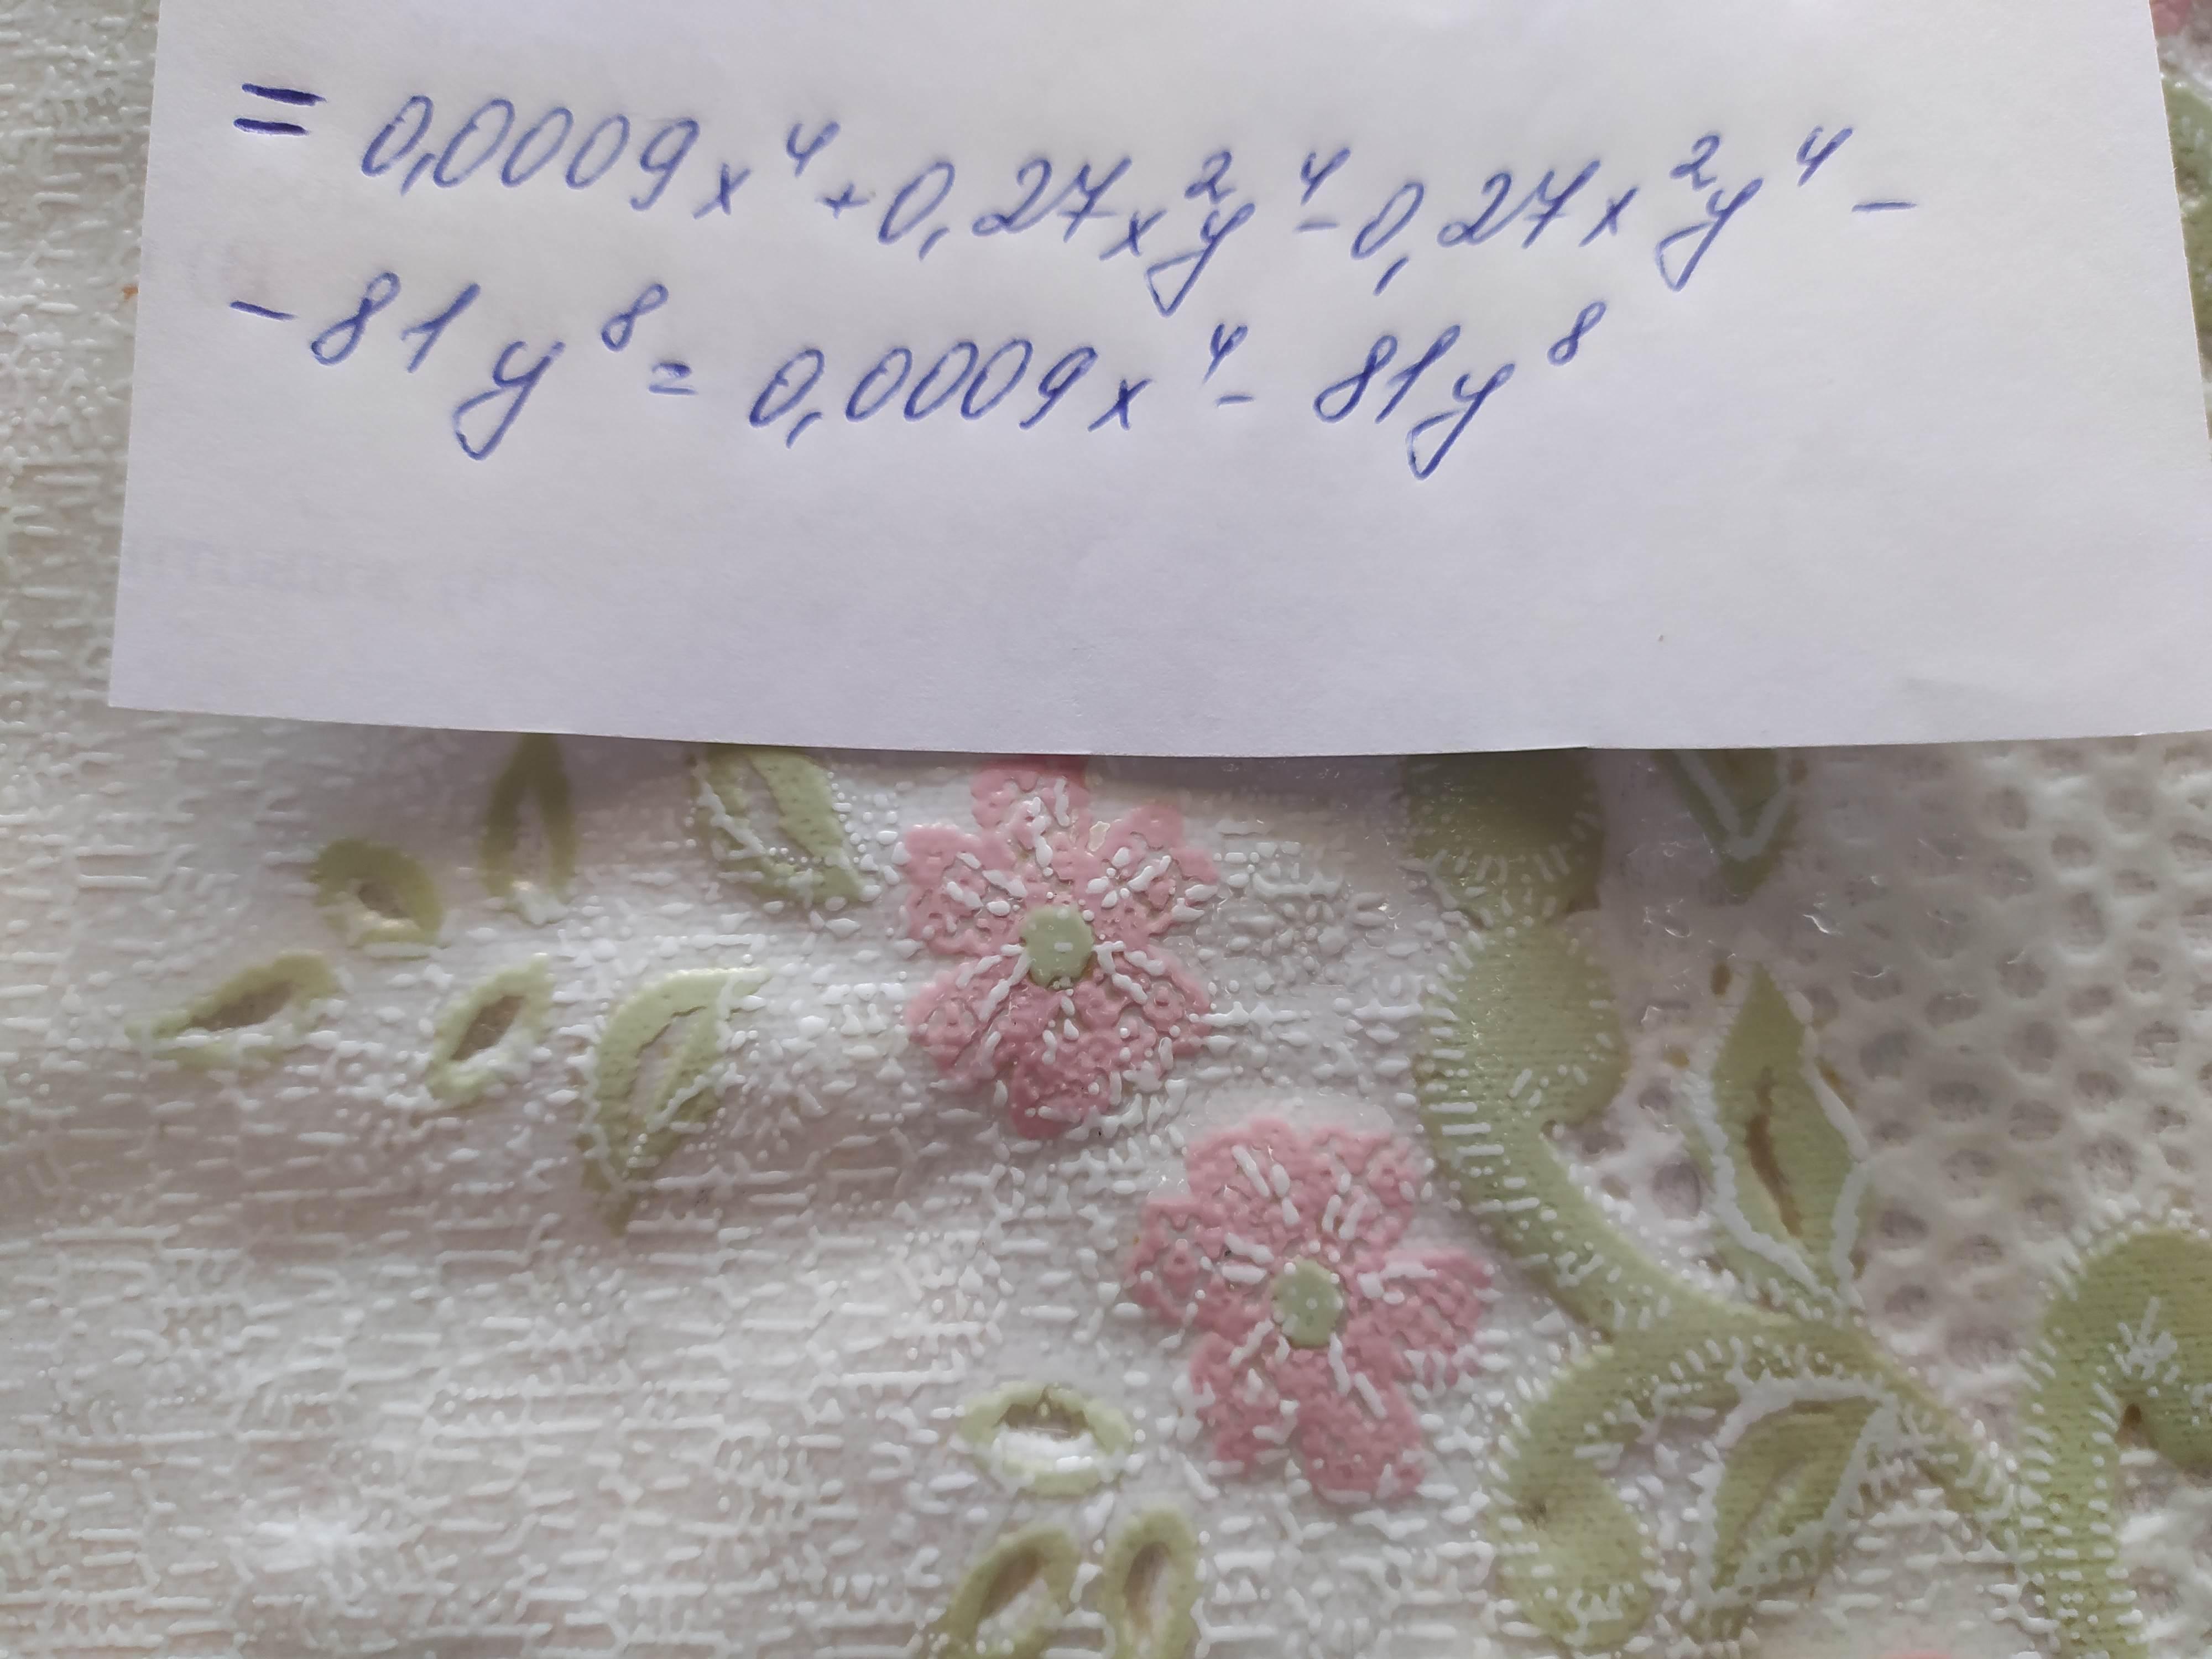 = 0,0009x⁴ + 0,27x²y⁴ - 0,27x²y⁴ -
- 81y⁸ = 0,0009x⁴ - 81y⁸